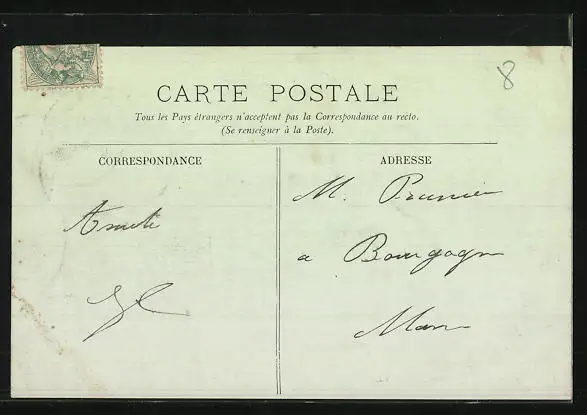 8
CARTE POSTALE
Tous les Pays étrangers n'acceptent pas la Correspondance au recto.
(Se renseigner à la Poste).
CORRESPONDANCE
ADRESSE
M. Prunier
a Bourgogne
Marne